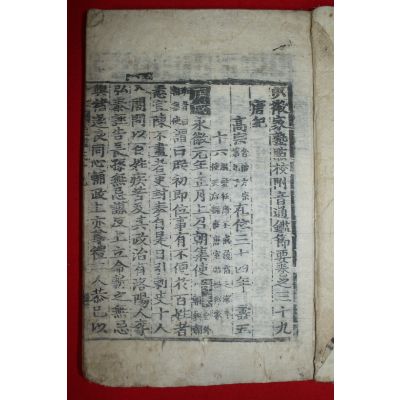 少微家塾點校附音通鑑節要卷之三十九
唐紀
高宗
在位三十四年 壽五
十六
永徽元年正月上召朝集使
謂曰朕初即位事有不便於百姓者
悉宜陳不盡者更封奏自是日引刺史十人
入閤問以百姓疾苦及其政治有洛陽人李
弘泰誣告長孫無忌謀反上立命斬之無忌
與褚遂良同心輔政上亦尊禮二人恭己以